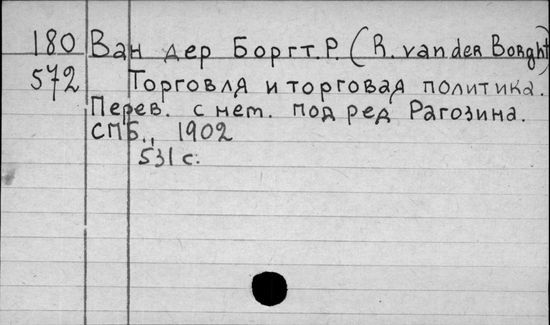 180 Ван дер Боргт. Р. (R. van der Borght)
572 Торговля и торговая политика.
Перев. с нет. под ред Рагозина.
СПБ., 1902
531 с.